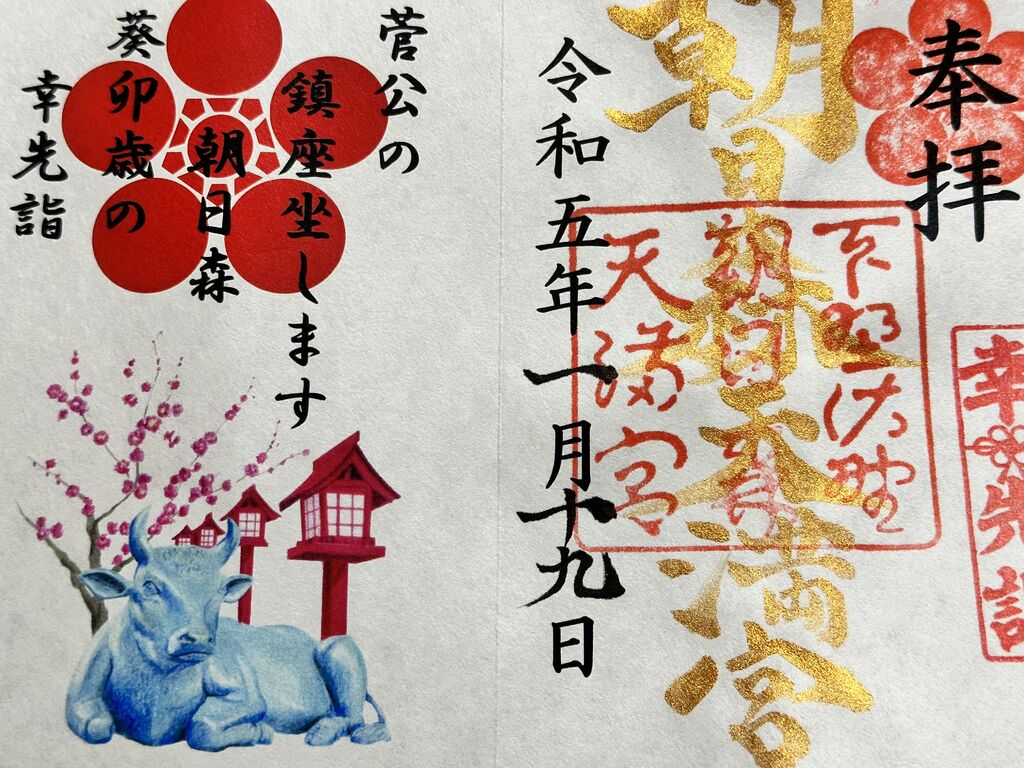 奉拝
幸先詣
朝日森天満宮
下野佐野
朝日森
天満宮
令和五年一月十九日
菅公の
鎮座坐します
朝日森
葵卯歳の
幸先詣